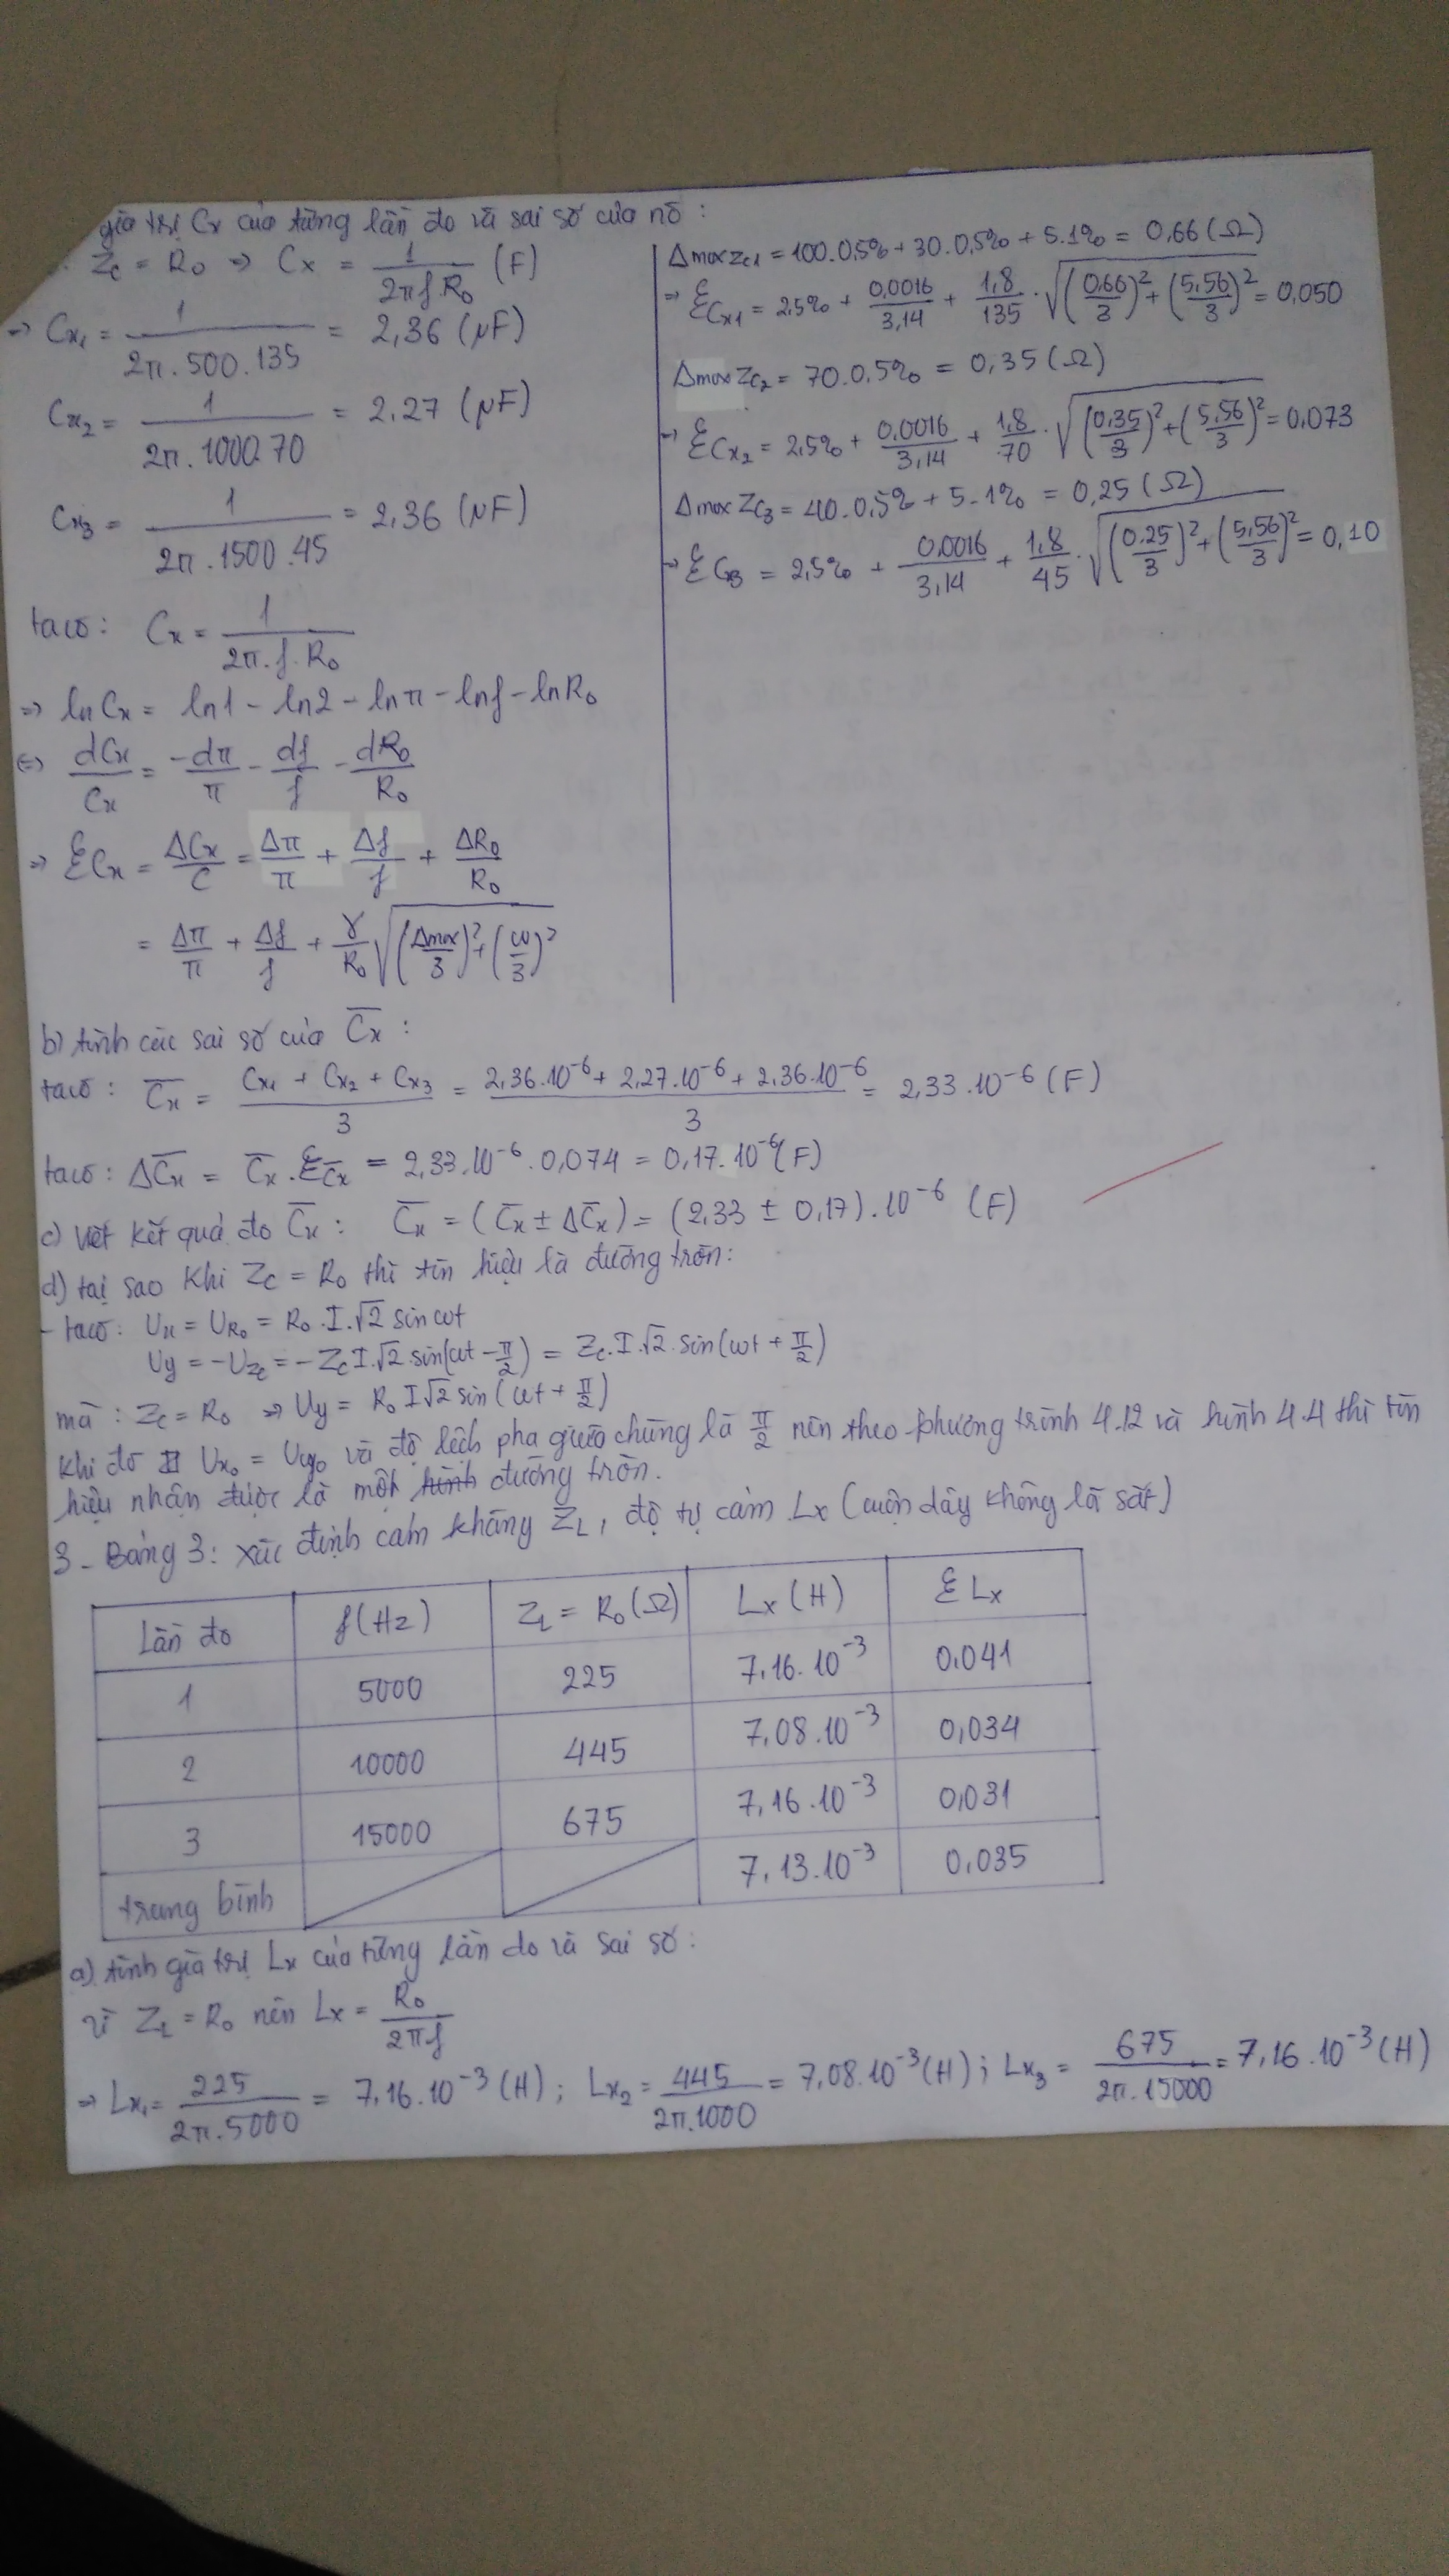 giá trị Cx của từng lần đo và sai số của nó :
Zc = R₀ => Cx = 1/(2πf.R₀) (F)
=> Cx₁ = 1/(2π.500.135) = 2,36 (μF)
Cx₂ = 1/(2π.1000.70) = 2,27 (μF)
Cx₃ = 1/(2π.1500.45) = 2,36 (μF)
ta có : Cx = 1/(2π.f.R₀)
=> lnCx = ln1 - ln2 - lnπ - lnf - lnR₀
<=> dCx/Cx = -dπ/π - df/f - dR₀/R₀
=> ℰCx = ΔCx/C = Δπ/π + Δf/f + ΔR₀/R₀
= Δπ/π + Δf/f + γ/R₀ √((Δmax/3)² + (ω/3)²)
Δmax Zc1 = 100.0,5% + 30.0,5% + 5.1% = 0,66 (Ω)
=> ℰCx1 = 2,5% + 0,0016/3,14 + 1,8/135 . √((0,66/3)² + (5,56/3)²) = 0,050
Δmax Zc₂ = 70.0,5% = 0,35 (Ω)
=> ℰCx₂ = 2,5% + 0,0016/3,14 + 1,8/70 . √((0,35/3)² + (5,56/3)²) = 0,073
Δmax Zc₃ = 40.0,5% + 5.1% = 0,25 (Ω)
=> ℰCx3 = 2,5% + 0,0016/3,14 + 1,8/45 . √((0,25/3)² + (5,56/3)²) = 0,10
b) tính các sai số của C̅x :
ta có : C̅x = (Cx₁ + Cx₂ + Cx₃)/3 = (2,36.10⁻⁶ + 2,27.10⁻⁶ + 2,36.10⁻⁶)/3 = 2,33.10⁻⁶ (F)
ta có : ΔC̅x = C̅x . ℰC̅x = 2,33.10⁻⁶ . 0,074 = 0,17.10⁻⁶ (F)
c) viết kết quả đo C̅x : C̅x = (C̅x ± ΔC̅x) = (2,33 ± 0,17).10⁻⁶ (F)
d) tại sao khi Zc = R₀ thì tín hiệu là đường tròn :
- ta có : Ux = UR₀ = R₀.I.√2 sin ωt
Uy = -Uzc = -Zc I.√2.sin(ωt - π/2) = Zc.I.√2.sin(ωt + π/2)
mà : Zc = R₀ => Uy = R₀ I√2 sin(ωt + π/2)
khi đó Ux₀ = Uy₀ và độ lệch pha giữa chúng là π/2 nên theo phương trình 4.12 và hình 4.4 thì tín
hiệu nhận được là một hình đường tròn.
3 - Bảng 3 : xác định cảm kháng ZL, độ tự cảm Lx (cuộn dây không lõi sắt)
Lần đo f(Hz) ZL = R₀(Ω) Lx (H) ℰLx
1 5000 225 7,16.10⁻³ 0,041
2 10000 445 7,08.10⁻³ 0,034
3 15000 675 7,16.10⁻³ 0,031
trung bình 7,13.10⁻³ 0,035
a) tính giá trị Lx của từng lần đo và sai số :
vì ZL = R₀ nên Lx = R₀/(2πf)
=> Lx₁ = 225/(2π.5000) = 7,16.10⁻³ (H) ; Lx₂ = 445/(2π.1000) = 7,08.10⁻³ (H) ; Lx₃ = 675/(2π.15000) = 7,16.10⁻³ (H)